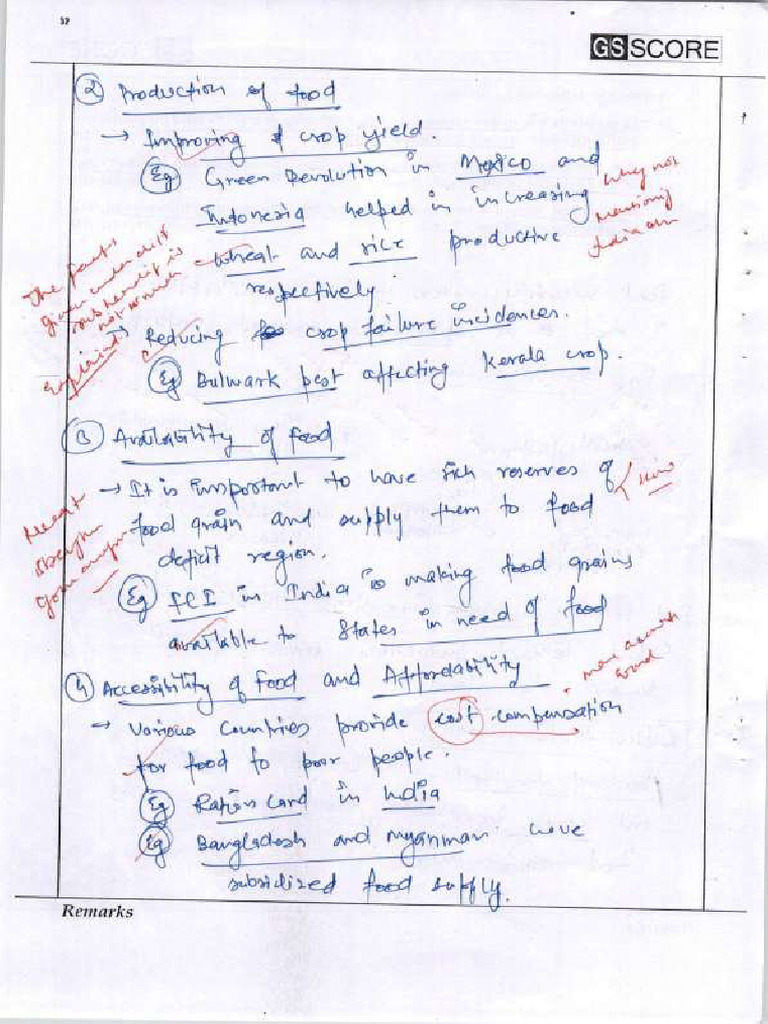 GS SCORE
② Production of food
→ Improving of crop yield.
Eg Green Revolution in Mexico and
Indonesia helped in increasing
why not
mentioning
India
wheat and rice productive
respectively.
The facts
given under
sub
not
→ Reducing crop failure incidences.
Eg Bulwark pest affecting Kerala crop.
③ Availability of food
→ It is important to have rich reserves of
food grain and supply them to food
deficit region.
Eg FCI in India is making food grains
available to States in need of food
④ Accessibility of food and Affordability
more
word
→ Various countries provide cost compensation
for food to poor people.
Eg Ration Card in India
Eg Bangladesh and Myanmar have
subsidized food supply.
Remarks